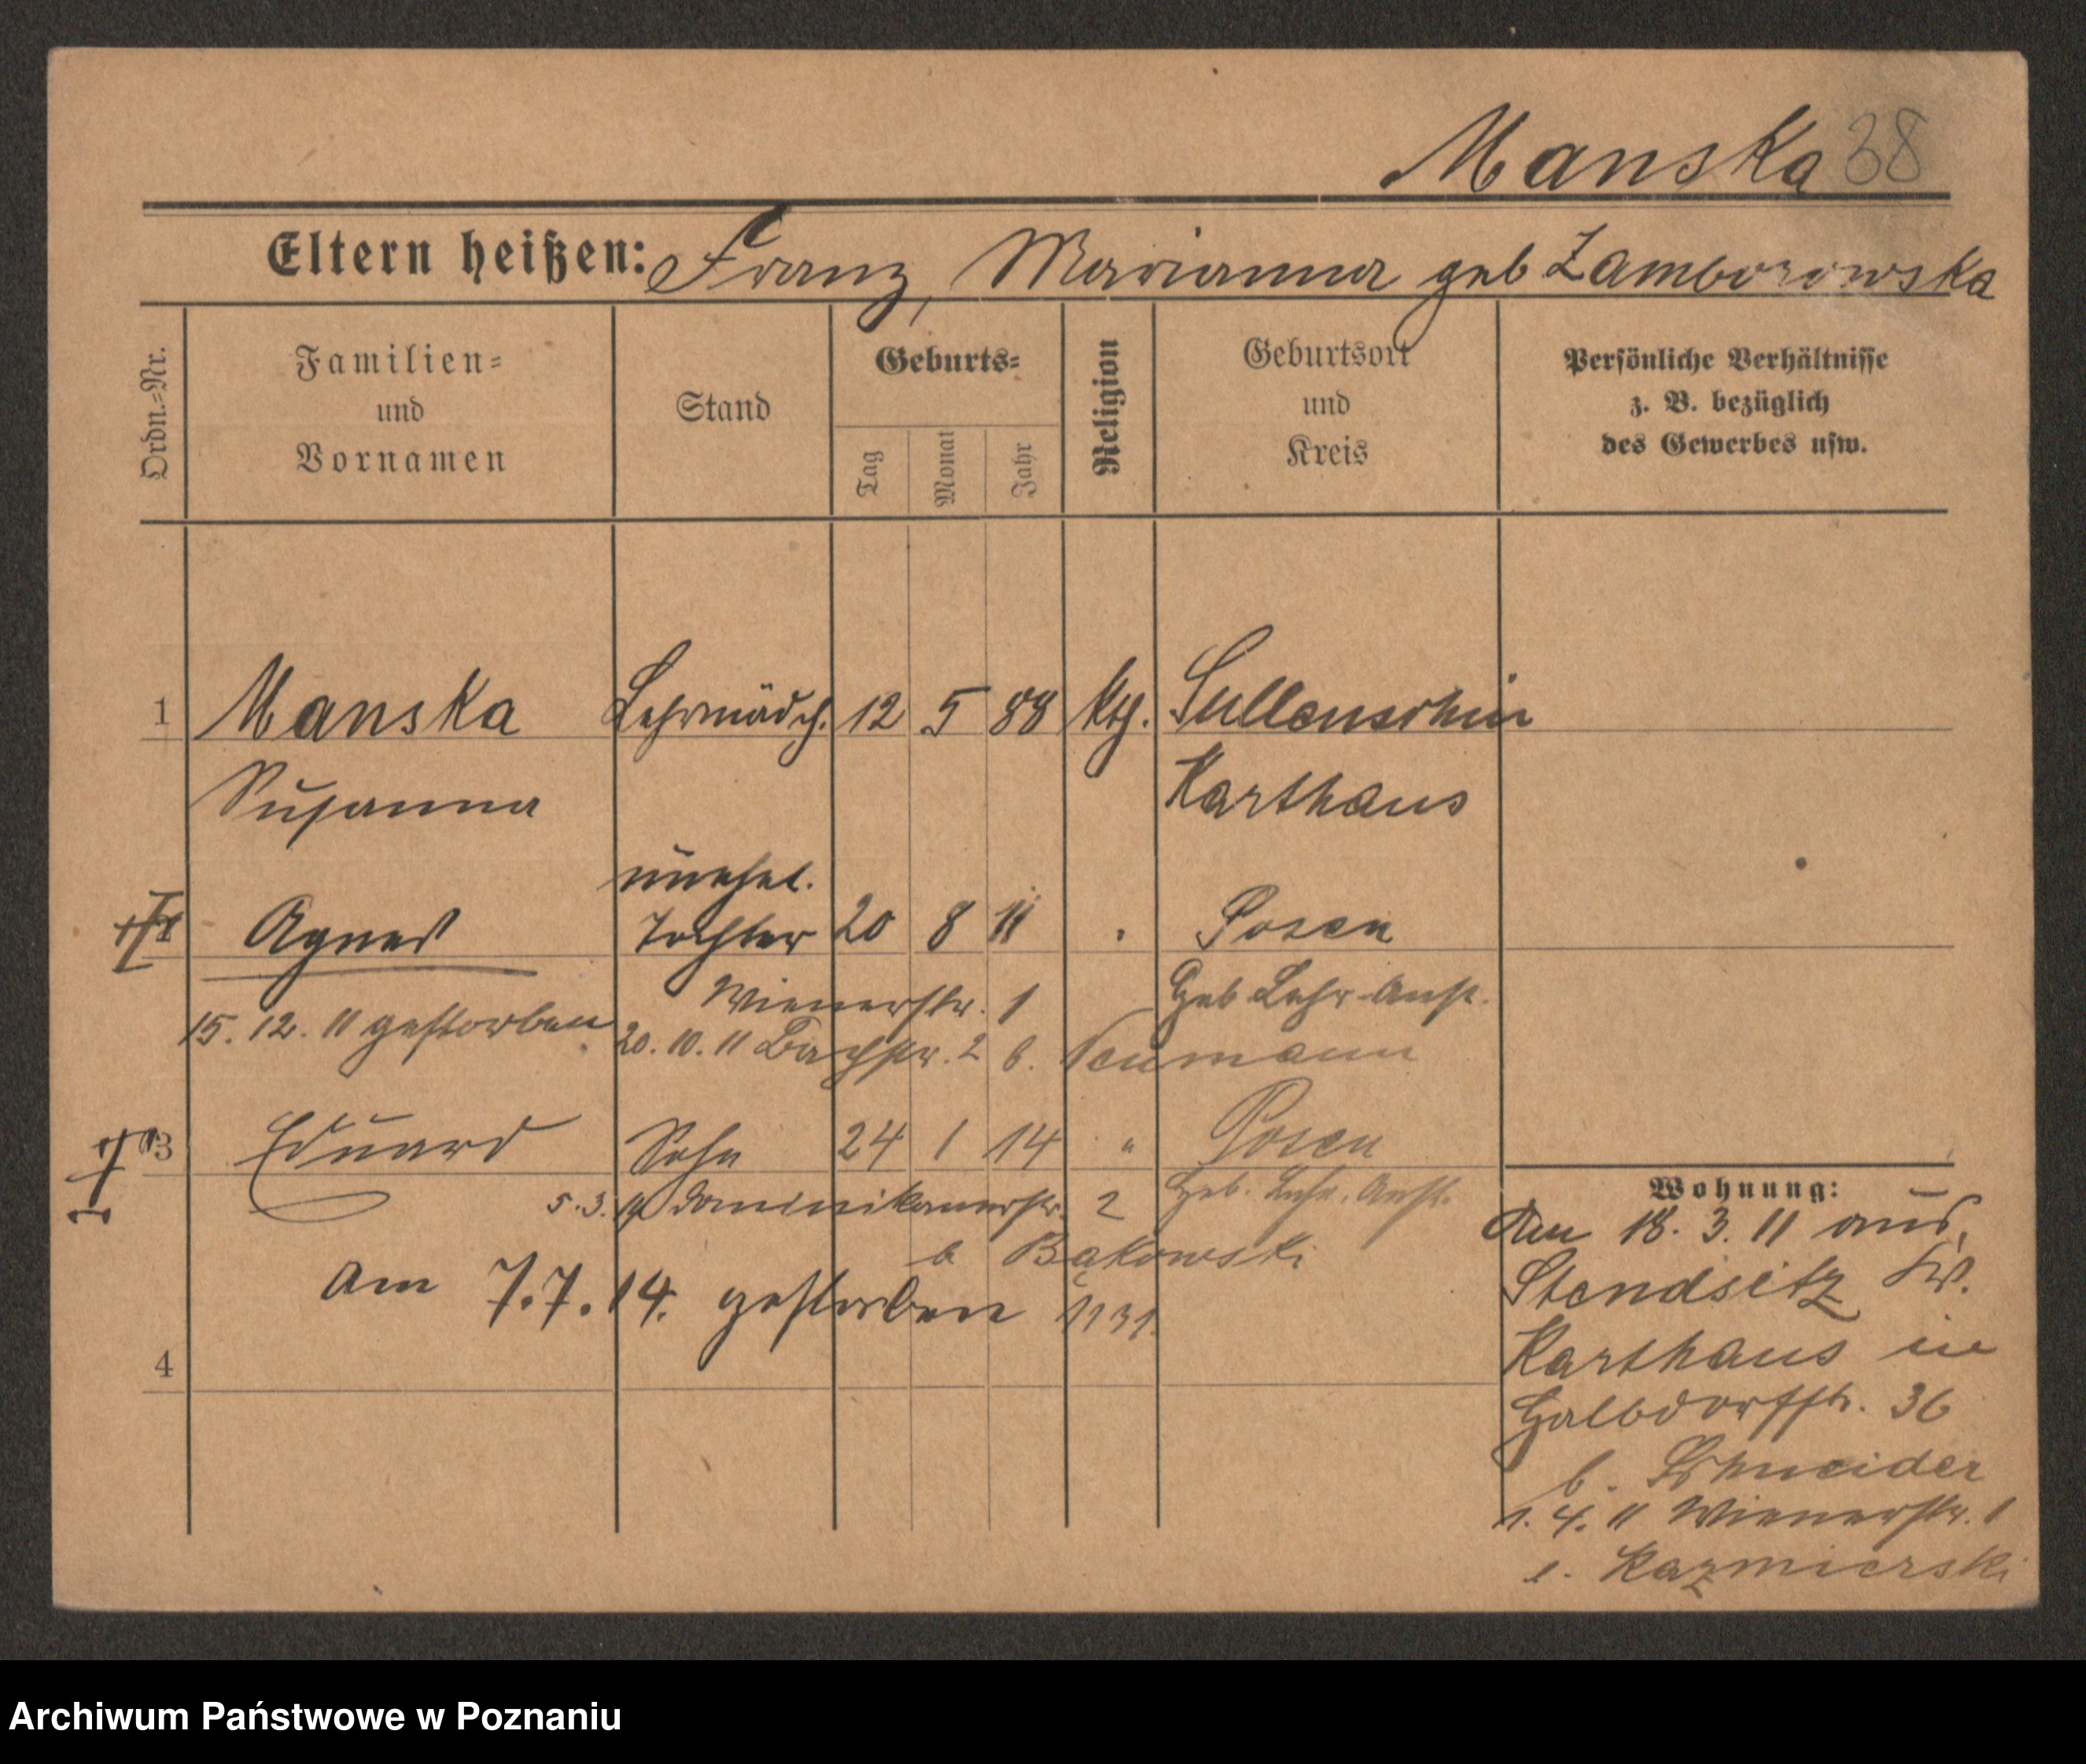 Manska 38
Eltern heißen: Franz, Marianna geb Zamborowska
Ordn.-Nr.
Familien-
und
Vornamen
Stand
Geburts-
Tag
Monat
Jahr
Religion
Geburtsort
und
Kreis
Persönliche Verhältnisse
z. B. bezüglich
des Gewerbes usw.
1 Manska Lehrmädch. 12 5 88 kth. Sullenschin
Susanna Karthaus
unehel.
Agnes Tochter 20 8 11 " Posen
Wienerstr. 1 Heb Lehr-Anst.
15. 12. 11 gestorben 20. 10. 11 Bachstr. 2 b. Neumann
3 Eduard Sohn 24 1 14 " Posen
5. 3. 14 Dominikanerstr. 2 Heb. Lehr. Anst.
b Bąkowski
Am 7.7.14. gestorben 1131.
4
Wohnung:
Am 18. 3. 11 aus
Stendsitz Kr.
Karthaus in
Halbdorfstr. 36
b. Schneider
1. 4. 11 Wienerstr. 1
Kazmierski
Archiwum Państwowe w Poznaniu